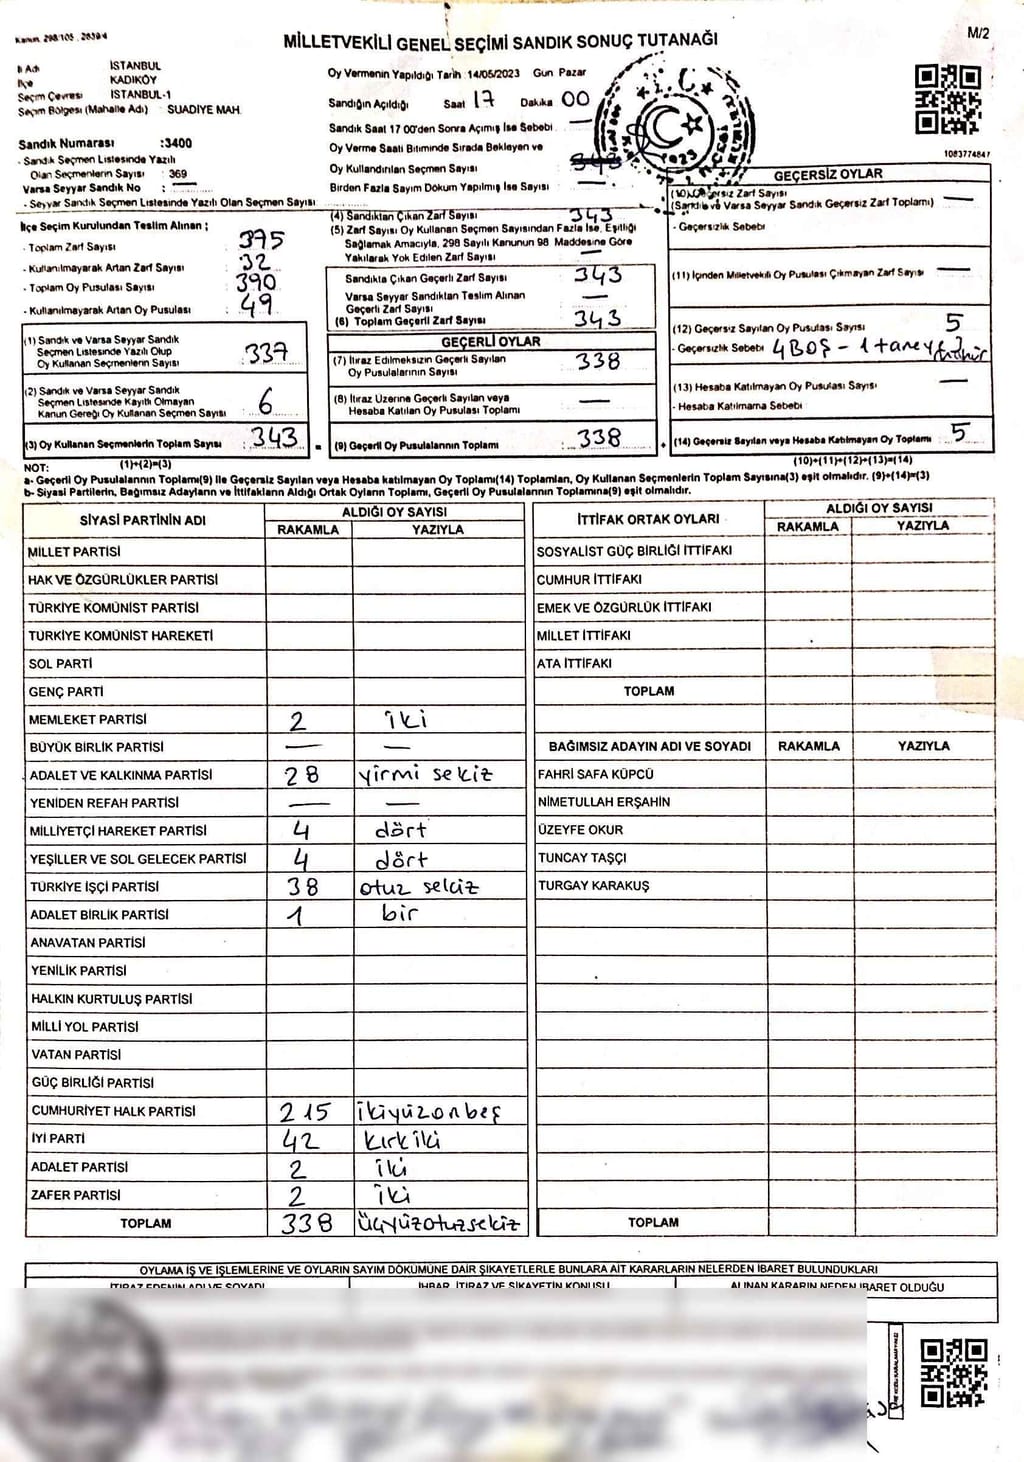 Kanun 298/105, 2839/4
MİLLETVEKİLİ GENEL SEÇİMİ SANDIK SONUÇ TUTANAĞI
M/2
İl Adı İSTANBUL
İlçe KADIKÖY
Seçim Çevresi İSTANBUL-1
Seçim Bölgesi (Mahalle Adı) : SUADİYE MAH.
Sandık Numarası :3400
- Sandık Seçmen Listesinde Yazılı
Olan Seçmenlerin Sayısı : 369
Varsa Seyyar Sandık No : —
- Seyyar Sandık Seçmen Listesinde Yazılı Olan Seçmen Sayısı
Oy Vermenin Yapıldığı Tarih :14/05/2023 Gün Pazar
Sandığın Açıldığı Saat 17 Dakika 00
Sandık Saat 17 00'den Sonra Açılmış İse Sebebi —
Oy Verme Saati Bitiminde Sırada Bekleyen ve
Oy Kullandırılan Seçmen Sayısı
Birden Fazla Sayım Döküm Yapılmış İse Sayısı —
2023
1083774847
İlçe Seçim Kurulundan Teslim Alınan ;
- Toplam Zarf Sayısı : 375
- Kullanılmayarak Artan Zarf Sayısı : 32
- Toplam Oy Pusulası Sayısı : 390
- Kullanılmayarak Artan Oy Pusulası : 49
(1) Sandık ve Varsa Seyyar Sandık
Seçmen Listesinde Yazılı Olup
Oy Kullanan Seçmenlerin Sayısı : 337
(2) Sandık ve Varsa Seyyar Sandık
Seçmen Listesinde Kayıtlı Olmayan
Kanun Gereği Oy Kullanan Seçmen Sayısı : 6
(3) Oy Kullanan Seçmenlerin Toplam Sayısı : 343
(4) Sandıktan Çıkan Zarf Sayısı 343
(5) Zarf Sayısı Oy Kullanan Seçmen Sayısından Fazla İse, Eşitliği
Sağlamak Amacıyla, 298 Sayılı Kanunun 98 Maddesine Göre
Yakılarak Yok Edilen Zarf Sayısı —
Sandıkta Çıkan Geçerli Zarf Sayısı 343
Varsa Seyyar Sandıktan Teslim Alınan
Geçerli Zarf Sayısı —
(6) Toplam Geçerli Zarf Sayısı 343
GEÇERLİ OYLAR
(7) İtiraz Edilmeksizin Geçerli Sayılan
Oy Pusulalarının Sayısı : 338
(8) İtiraz Üzerine Geçerli Sayılan veya
Hesaba Katılan Oy Pusulası Toplamı —
(9) Geçerli Oy Pusulalarının Toplamı : 338
GEÇERSİZ OYLAR
(10) Geçersiz Zarf Sayısı
(Sandık ve Varsa Seyyar Sandık Geçersiz Zarf Toplamı) —
- Geçersizlik Sebebi
(11) İçinden Milletvekili Oy Pusulası Çıkmayan Zarf Sayısı —
(12) Geçersiz Sayılan Oy Pusulası Sayısı 5
- Geçersizlik Sebebi 4 BOŞ - 1 tane
(13) Hesaba Katılmayan Oy Pusulası Sayısı —
- Hesaba Katılmama Sebebi
(14) Geçersiz Sayılan veya Hesaba Katılmayan Oy Toplamı 5
NOT: (1)+(2)=(3) (10)+(11)+(12)+(13)=(14)
a- Geçerli Oy Pusulalarının Toplamı(9) ile Geçersiz Sayılan veya Hesaba katılmayan Oy Toplamı(14) Toplamları, Oy Kullanan Seçmenlerin Toplam Sayısına(3) eşit olmalıdır. (9)+(14)=(3)
b- Siyasi Partilerin, Bağımsız Adayların ve İttifakların Aldığı Ortak Oyların Toplamı, Geçerli Oy Pusulalarının Toplamına(9) eşit olmalıdır.
SİYASİ PARTİNİN ADI ALDIĞI OY SAYISI
RAKAMLA YAZIYLA
MİLLET PARTİSİ
HAK VE ÖZGÜRLÜKLER PARTİSİ
TÜRKİYE KOMÜNİST PARTİSİ
TÜRKİYE KOMÜNİST HAREKETİ
SOL PARTİ
GENÇ PARTİ
MEMLEKET PARTİSİ 2 iki
BÜYÜK BİRLİK PARTİSİ — —
ADALET VE KALKINMA PARTİSİ 28 yirmi sekiz
YENİDEN REFAH PARTİSİ — —
MİLLİYETÇİ HAREKET PARTİSİ 4 dört
YEŞİLLER VE SOL GELECEK PARTİSİ 4 dört
TÜRKİYE İŞÇİ PARTİSİ 38 otuz sekiz
ADALET BİRLİK PARTİSİ 1 bir
ANAVATAN PARTİSİ
YENİLİK PARTİSİ
HALKIN KURTULUŞ PARTİSİ
MİLLİ YOL PARTİSİ
VATAN PARTİSİ
GÜÇ BİRLİĞİ PARTİSİ
CUMHURİYET HALK PARTİSİ 215 ikiyüzonbeş
İYİ PARTİ 42 kırkiki
ADALET PARTİSİ 2 iki
ZAFER PARTİSİ 2 iki
TOPLAM 338 Üçyüzotuzsekiz
İTTİFAK ORTAK OYLARI ALDIĞI OY SAYISI
RAKAMLA YAZIYLA
SOSYALİST GÜÇ BİRLİĞİ İTTİFAKI
CUMHUR İTTİFAKI
EMEK VE ÖZGÜRLÜK İTTİFAKI
MİLLET İTTİFAKI
ATA İTTİFAKI
TOPLAM
BAĞIMSIZ ADAYIN ADI VE SOYADI RAKAMLA YAZIYLA
FAHRİ SAFA KÜPCÜ
NİMETULLAH ERŞAHİN
ÜZEYFE OKUR
TUNCAY TAŞÇI
TURGAY KARAKUŞ
TOPLAM
OYLAMA İŞ VE İŞLEMLERİNE VE OYLARIN SAYIM DÖKÜMÜNE DAİR ŞİKAYETLERLE BUNLARA AİT KARARLARIN NELERDEN İBARET BULUNDUKLARI
İTİRAZ EDENİN ADI VE SOYADI İHBAR, İTİRAZ VE ŞİKAYETİN KONUSU ALINAN KARARIN NEDEN İBARET OLDUĞU